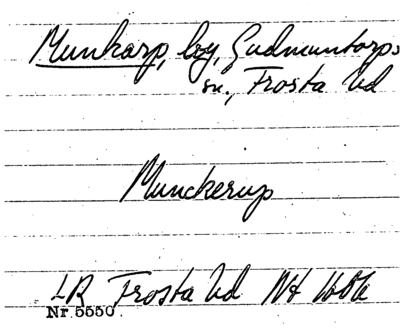 Munkarp, by, Gudmuntorps
sn., Frosta hd
Munckerup
LR Frosta hd Nr
Nr 5550.